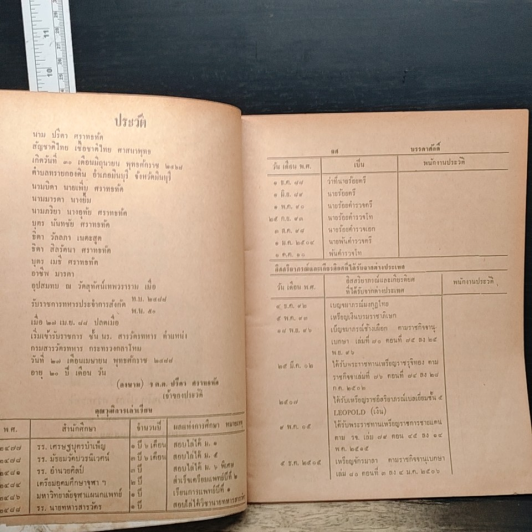 ประวัติ
นาม ปรีดา ศราทธทัต
สัญชาติไทย เชื้อชาติไทย ศาสนาพุทธ
เกิดวันที่ ๓๐ เดือนมิถุนายน พุทธศักราช ๒๔๖๘
ตำบลทรายกองดิน อำเภอมีนบุรี จังหวัดมีนบุรี
นามบิดา นายเพิ่ม ศราทธทัต
นามมารดา
นามภริยา ศราทธทัต
บุตร นันทชัย ศราทธทัต
ธิดา วัลลภา เนตอสุต
ธิดา ศิลรัตนา ศราทธทัต
บุตร เมธี ศราทธทัต
อาชีพ มารดา
อุปสมบท ณ วัดสุทัศน์เทพวราราม เมื่อ
พ.ย. ๒๔๙๘
รับราชการทหารประจำการสังกัด
เมื่อ ๒๗ เม.ย. ๘๘ ปลดเมื่อ พ.ย. ๕๐
เริ่มเข้ารับราชการ ชั้น นร. สารวัตรทหาร ตำแหน่ง
กรมสารวัตรทหาร กระทรวงกลาโหม
วันที่ ๒๗ เดือนเมษายน พุทธศักราช ๒๔๘๘
อายุ ๒๐ ปี เดือน วัน
(ลงนาม) ร.ต.ต. ปรีดา ศราทธทัต
เจ้าของประวัติ
คุณวุฒิการเล่าเรียน
พ.ศ. สำนักศึกษา จำนวนปี ผลแห่งการศึกษา หมายเหตุ
รร. เศรษฐบุตรบำเพ็ญ สอบไล่ได้ ม. ๓
รร. มัธยมวัดบวรนิเวศน์ สอบไล่ได้ ม. ๕
รร. อำนวยศิลป์ ๑ ปี สอบไล่ได้ ม. ๖ พิเศษ
เตรียมอุดมศึกษาจุฬา ฯ ๒ ปี สำเร็จเตรียมแพทย์ปีที่ ๒
มหาวิทยาลัยจุฬาแผนกแพทย์ ๑ ปี เรียนการแพทย์ปีที่ ๑
รร. นายทหารสารวัตร ๑ ปี สอบไล่ได้วิชานายทหารสารวัตร
ยศ บรรดาศักดิ์
วัน เดือน พ.ศ. เป็น พนักงานประวัติ
๑ ธ.ค. ๘๘ ว่าที่นายร้อยตรี
๑ มิ.ย. ๘๙ นายร้อยตรี
๑ พ.ค. ๙๐ นายร้อยตำรวจตรี
นายร้อยตำรวจโท
นายร้อยตำรวจเอก
๑ ม.ค. ๒๕๐๐ นายพันตำรวจตรี
พันตำรวจโท
อิสสริยาภรณ์และเกียรติยศที่ได้รับจากต่างประเทศ
วัน เดือน พ.ศ. อิสสริยาภรณ์และเกียรติยศ พนักงานประวัติ
ที่ได้รับจากต่างประเทศ
๕ ธ.ค. ๙๒ เบญจมาภรณ์มงกุฎไทย
๕ พ.ค. ๙๓ เหรียญเงินบรมราชาภิเษก
๑๘ พ.ย. ๙๖ เบ็ญจมาภรณ์ช้างเผือก ตามราชกิจจานุ-
เบกษา เล่ม ๗๐ ตอนที่ ๗๕ ลง ๒๕
พ.ย. ๙๖
๒๕ มี.ค. ๐๒ ได้รับพระราชทานเหรียญราชรุจิทอง ตาม
ราชกิจจาเล่ม ๗๖ ตอนที่ ๗๔ ลง ๒๘
ก.ค. ๒๕๐๒
๒๕๐๗ ได้รับเหรียญราชอิสริยาภรณ์เบลเยี่ยมชั้น ๕
LEOPOLD (เงิน)
๙ พ.ค. ๐๕ ได้รับพระราชทานเหรียญราชการชายแดน
ตาม รจ. เล่ม ๗๙ ตอน ๔๕ ลง
พ.ค. ๒๕๐๕
๕ ธ.ค. ๒๕๐๕ เหรียญจักรมาลา ตามราชกิจจานุเบกษา
เล่ม ๘๐ ตอนที่ ๓ ลง ๔ ม.ค. ๒๕๐๖